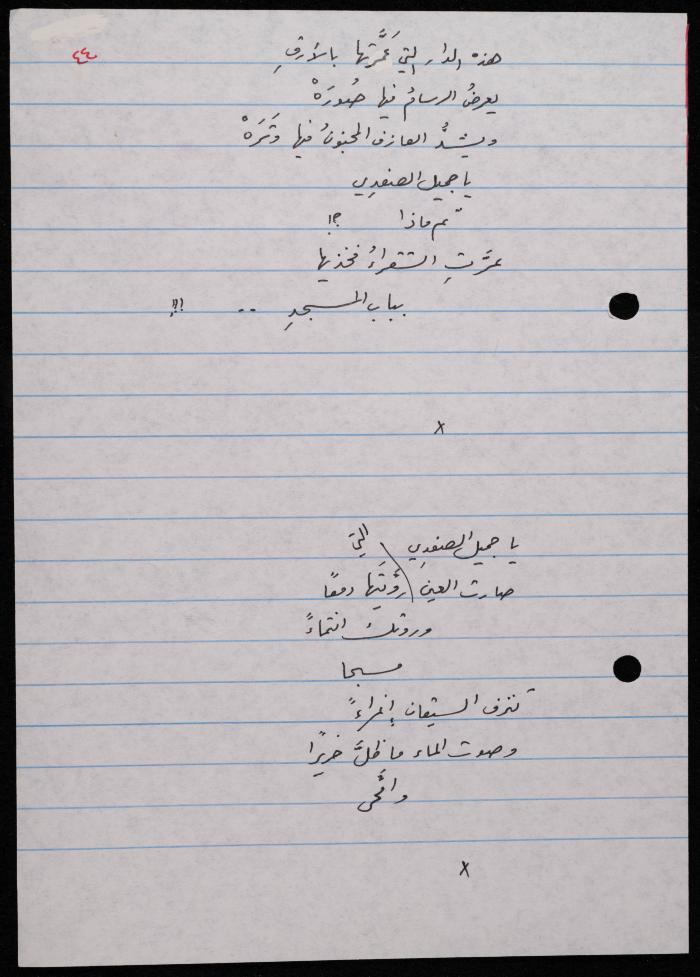 ٤٤
هذه الدار التي عَمَّرتها بالأرقِ
يعرضُ الرسامُ فيها صُورَهْ
ويشدُّ العازف المجنونُ فيها وَتَرَهْ
يا جميل الصنفدي
ثم ماذا ؟!
عرَّتِ الشقراءُ فخذيها
بباب المسجدِ .. !!؟
x
يا جميل الصنفدي التي
صارت العين رؤيتها دمعًا
وروتك انتماءً
مسبحا
تنزف السيقان إغراءً
وصوت الماء ما ظلَّ خريرًا
وامَّحى
x